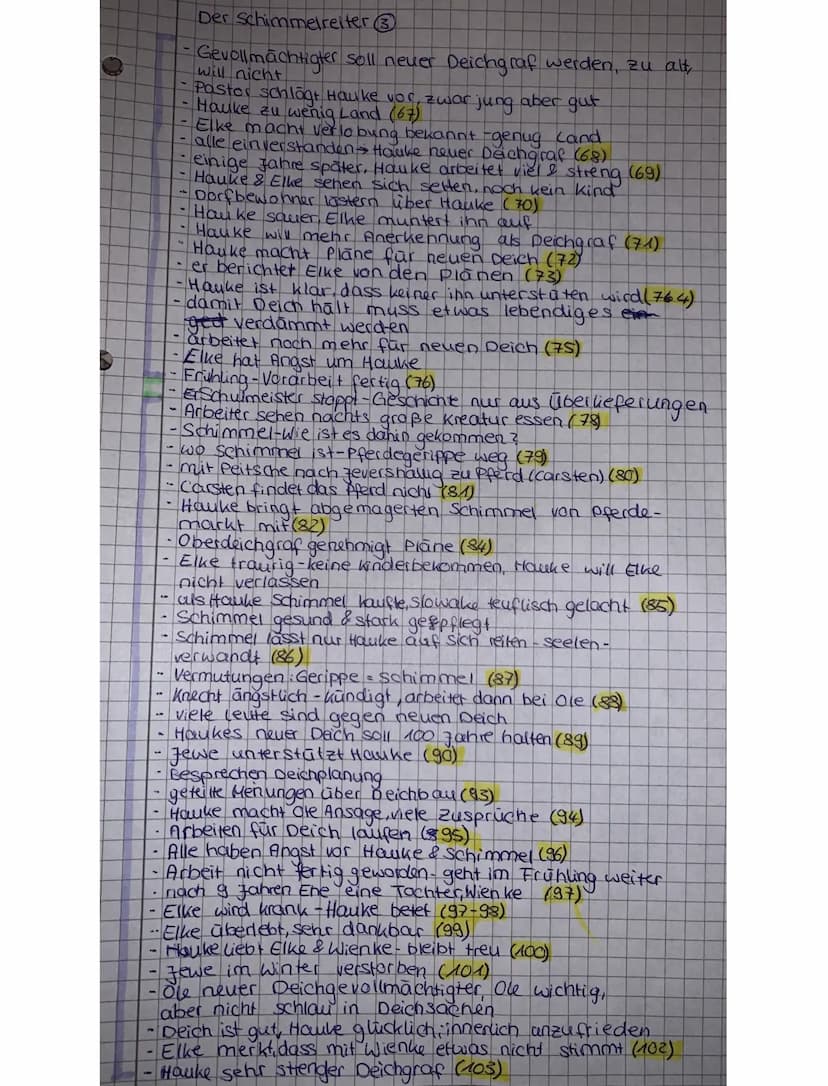 Der Schimmelreiter ③
- Gevollmächtigter soll neuer Deichgraf werden, zu alt,
will nicht
- Pastor schlägt Hauke vor, zwar jung aber gut
- Hauke zu wenig Land (67)
- Elke macht Verlobung bekannt - genug Land
- alle einverstanden → Hauke neuer Deichgraf (68)
- einige Jahre später, Hauke arbeitet viel & streng (69)
- Hauke & Elke sehen sich selten, noch kein Kind
- Dorfbewohner lästern über Hauke (70)
- Hauke sauer, Elke muntert ihn auf
- Hauke will mehr Anerkennung als Deichgraf (71)
- Hauke macht Pläne für neuen Deich (72)
- er berichtet Elke von den Plänen (73)
- Hauke ist klar, dass keiner ihn unterstäten wird (764)
- damit Deich hält muss etwas lebendiges ein
ged verdämmt werden
- arbeitet noch mehr für neuen Deich (75)
- Elke hat Angst um Hauke
- Frühling - Vorarbeit fertig (76)
- Schulmeister stoppt - Geschichte nur aus Überlieferungen
- Arbeiter sehen nachts große Kreatur essen (78)
- Schimmel - Wie ist es dahin gekommen?
- wo Schimmel ist - Pferdegerippe weg (79)
- mit Peitsche nach Jevershallig zu Pferd (Carsten) (80)
- Carsten findet das Pferd nicht (81)
- Hauke bringt abgemagerten Schimmel von Pferde-
markt mit (82)
- Oberdeichgraf genehmigt Pläne (84)
- Elke traurig - keine Kinder bekommen, Hauke will Elke
nicht verlassen
- als Hauke Schimmel kaufte, Slowake teuflisch gelacht (85)
- Schimmel gesund & stark gepflegt
- Schimmel lässt nur Hauke auf sich reiten - seelen-
verwandt (86)
- Vermutungen: Gerippe = Schimmel (87)
- Knecht ängstlich - kündigt, arbeitet dann bei Ole (88)
- viele Leute sind gegen neuen Deich
- Haukes neuer Deich soll 100 Jahre halten (89)
- Jewe unterstützt Hauke (90)
- Besprechen Deichplanung
- geteilte Meinungen über Deichbau (93)
- Hauke macht die Ansage, viele Zusprüche (94)
- Arbeiten für Deich laufen (95)
- Alle haben Angst vor Hauke & Schimmel (96)
- Arbeit nicht fertig geworden - geht im Frühling weiter
- nach 9 Jahren Ehe eine Tochter, Wienke (97)
- Elke wird krank - Hauke betet (97-98)
- Elke überlebt, sehr dankbar (99)
- Hauke liebt Elke & Wienke - bleibt treu (100)
- Jewe im Winter verstorben (101)
- Ole neuer Deichgevollmächtigter, Ole wichtig,
aber nicht schlau in Deichsachen
- Deich ist gut, Hauke glücklich, innerlich unzufrieden
- Elke merkt, dass mit Wienke etwas nicht stimmt (102)
- Hauke sehr strenger Deichgraf (103)